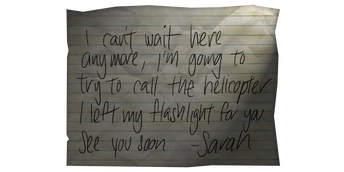 I can't wait here
anymore, i'm going to
try to call the helicopter
I left my flashlight for you
see you soon -Sarah